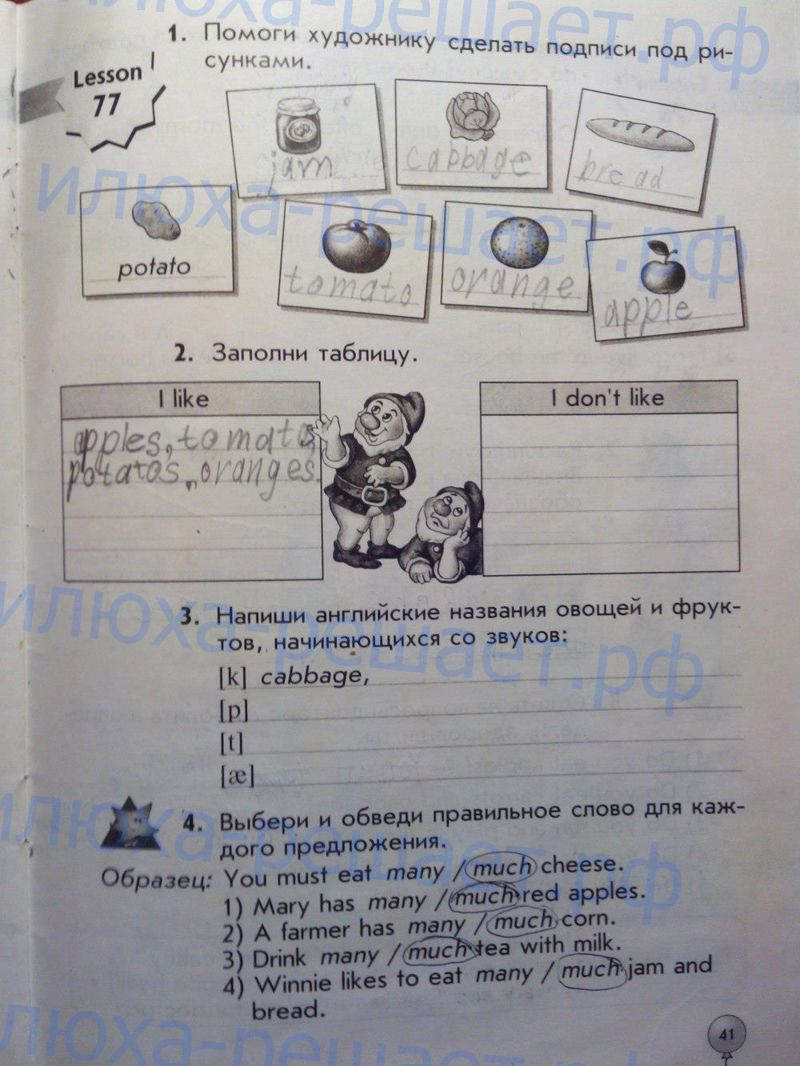 1. Помоги художнику сделать подписи под ри-
сунками.
Lesson
77
jam
cabbage
bread
potato
tomato
orange
apple
2. Заполни таблицу.
I like
I don't like
apples, tomatos,
potatos, oranges.
3. Напиши английские названия овощей и фрук-
тов, начинающихся со звуков:
[k] cabbage,
[p]
[t]
[æ]
4. Выбери и обведи правильное слово для каж-
дого предложения.
Образец: You must eat many / much cheese.
1) Mary has many / much red apples.
2) A farmer has many / much corn.
3) Drink many / much tea with milk.
4) Winnie likes to eat many / much jam and
bread.
41
илюха-решает.рф
илюха-решает.рф
илюха-решает.рф
илюха-решает.рф
илюха-решает.рф